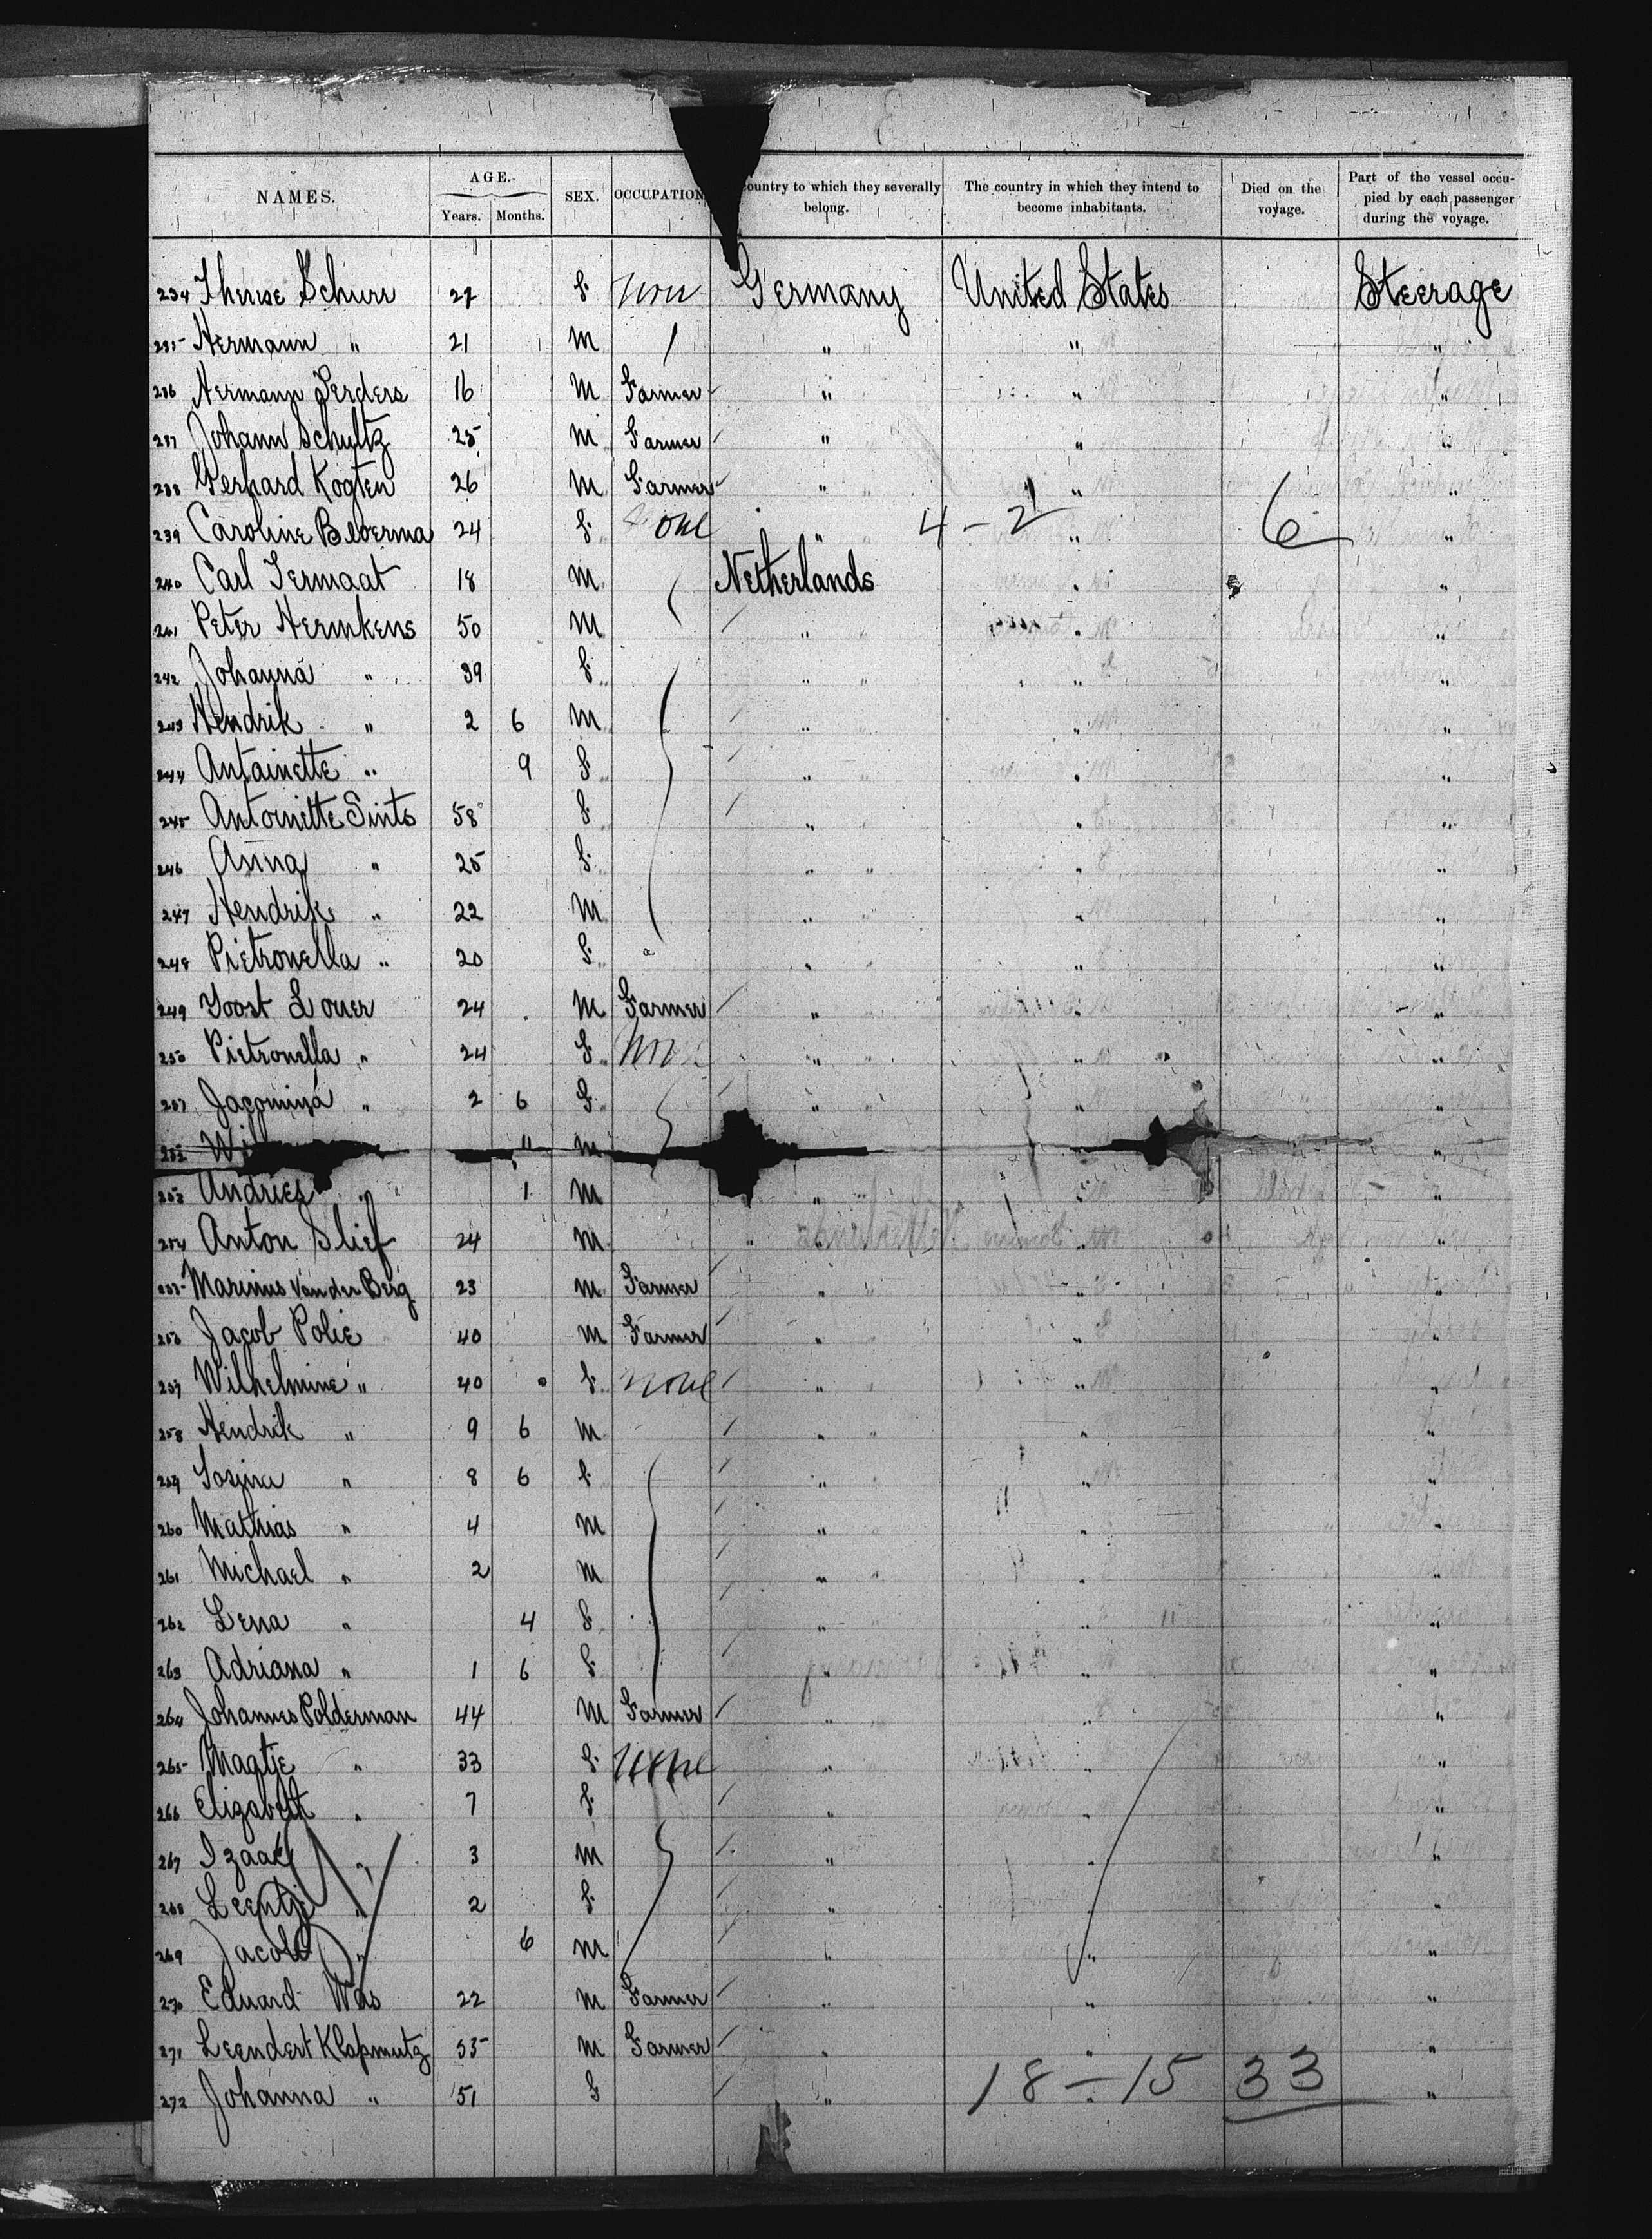 NAMES. AGE. Years. Months. SEX. OCCUPATION Country to which they severally belong. The country in which they intend to become inhabitants. Died on the voyage. Part of the vessel occupied by each passenger during the voyage.
234 Therese Schurr 27 f None Germany United States Steerage
235 Hermann " 21 M / " " "
236 Hermann Gerders 16 M Farmer " " "
237 Johann Schultz 25 M Farmer " " "
238 Gerhard Kogten 26 M Farmer " " "
239 Caroline Beverma 24 f None " 4 - 2 " 6 "
240 Carl Termaat 18 M Netherlands " "
241 Peter Hermkens 50 M " " "
242 Johanna " 39 f " " "
243 Hendrik " 2 6 M " " "
244 Antainette " 9 f " " "
245 Antoinette Sints 58 f " " "
246 Anna " 25 f " " "
247 Hendrik " 22 M " " "
248 Pietronella " 20 f " " "
249 Joost Louer 24 M Farmer " " "
250 Pietronella " 24 f None " " "
251 Jacomina " 2 6 f " " "
252 11 M "
253 Andries " 1 M " "
254 Anton Slief 24 M " " "
255 Marinus Van der Berg 23 M Farmer " " "
256 Jacob Polie 40 M Farmer " " "
257 Wilhelmine " 40 f None " " "
258 Hendrik " 9 6 M " " "
259 Josina " 8 6 f " " "
260 Mathias " 4 M " " "
261 Michael " 2 M " " "
262 Lena " 4 f " " "
263 Adriana " 1 6 f " " "
264 Johannes Polderman 44 M Farmer " " "
265 Magtje " 33 f None " " "
266 Elizabeth " 7 f " " "
267 Izaak " 3 M " " "
268 Leentje " 2 f " " "
269 Jacob " 6 M " " "
270 Eduard Was 22 M Farmer " " "
271 Leendert Klapmutz 55 M Farmer " " "
272 Johanna " 51 f " 18 - 15 33 "